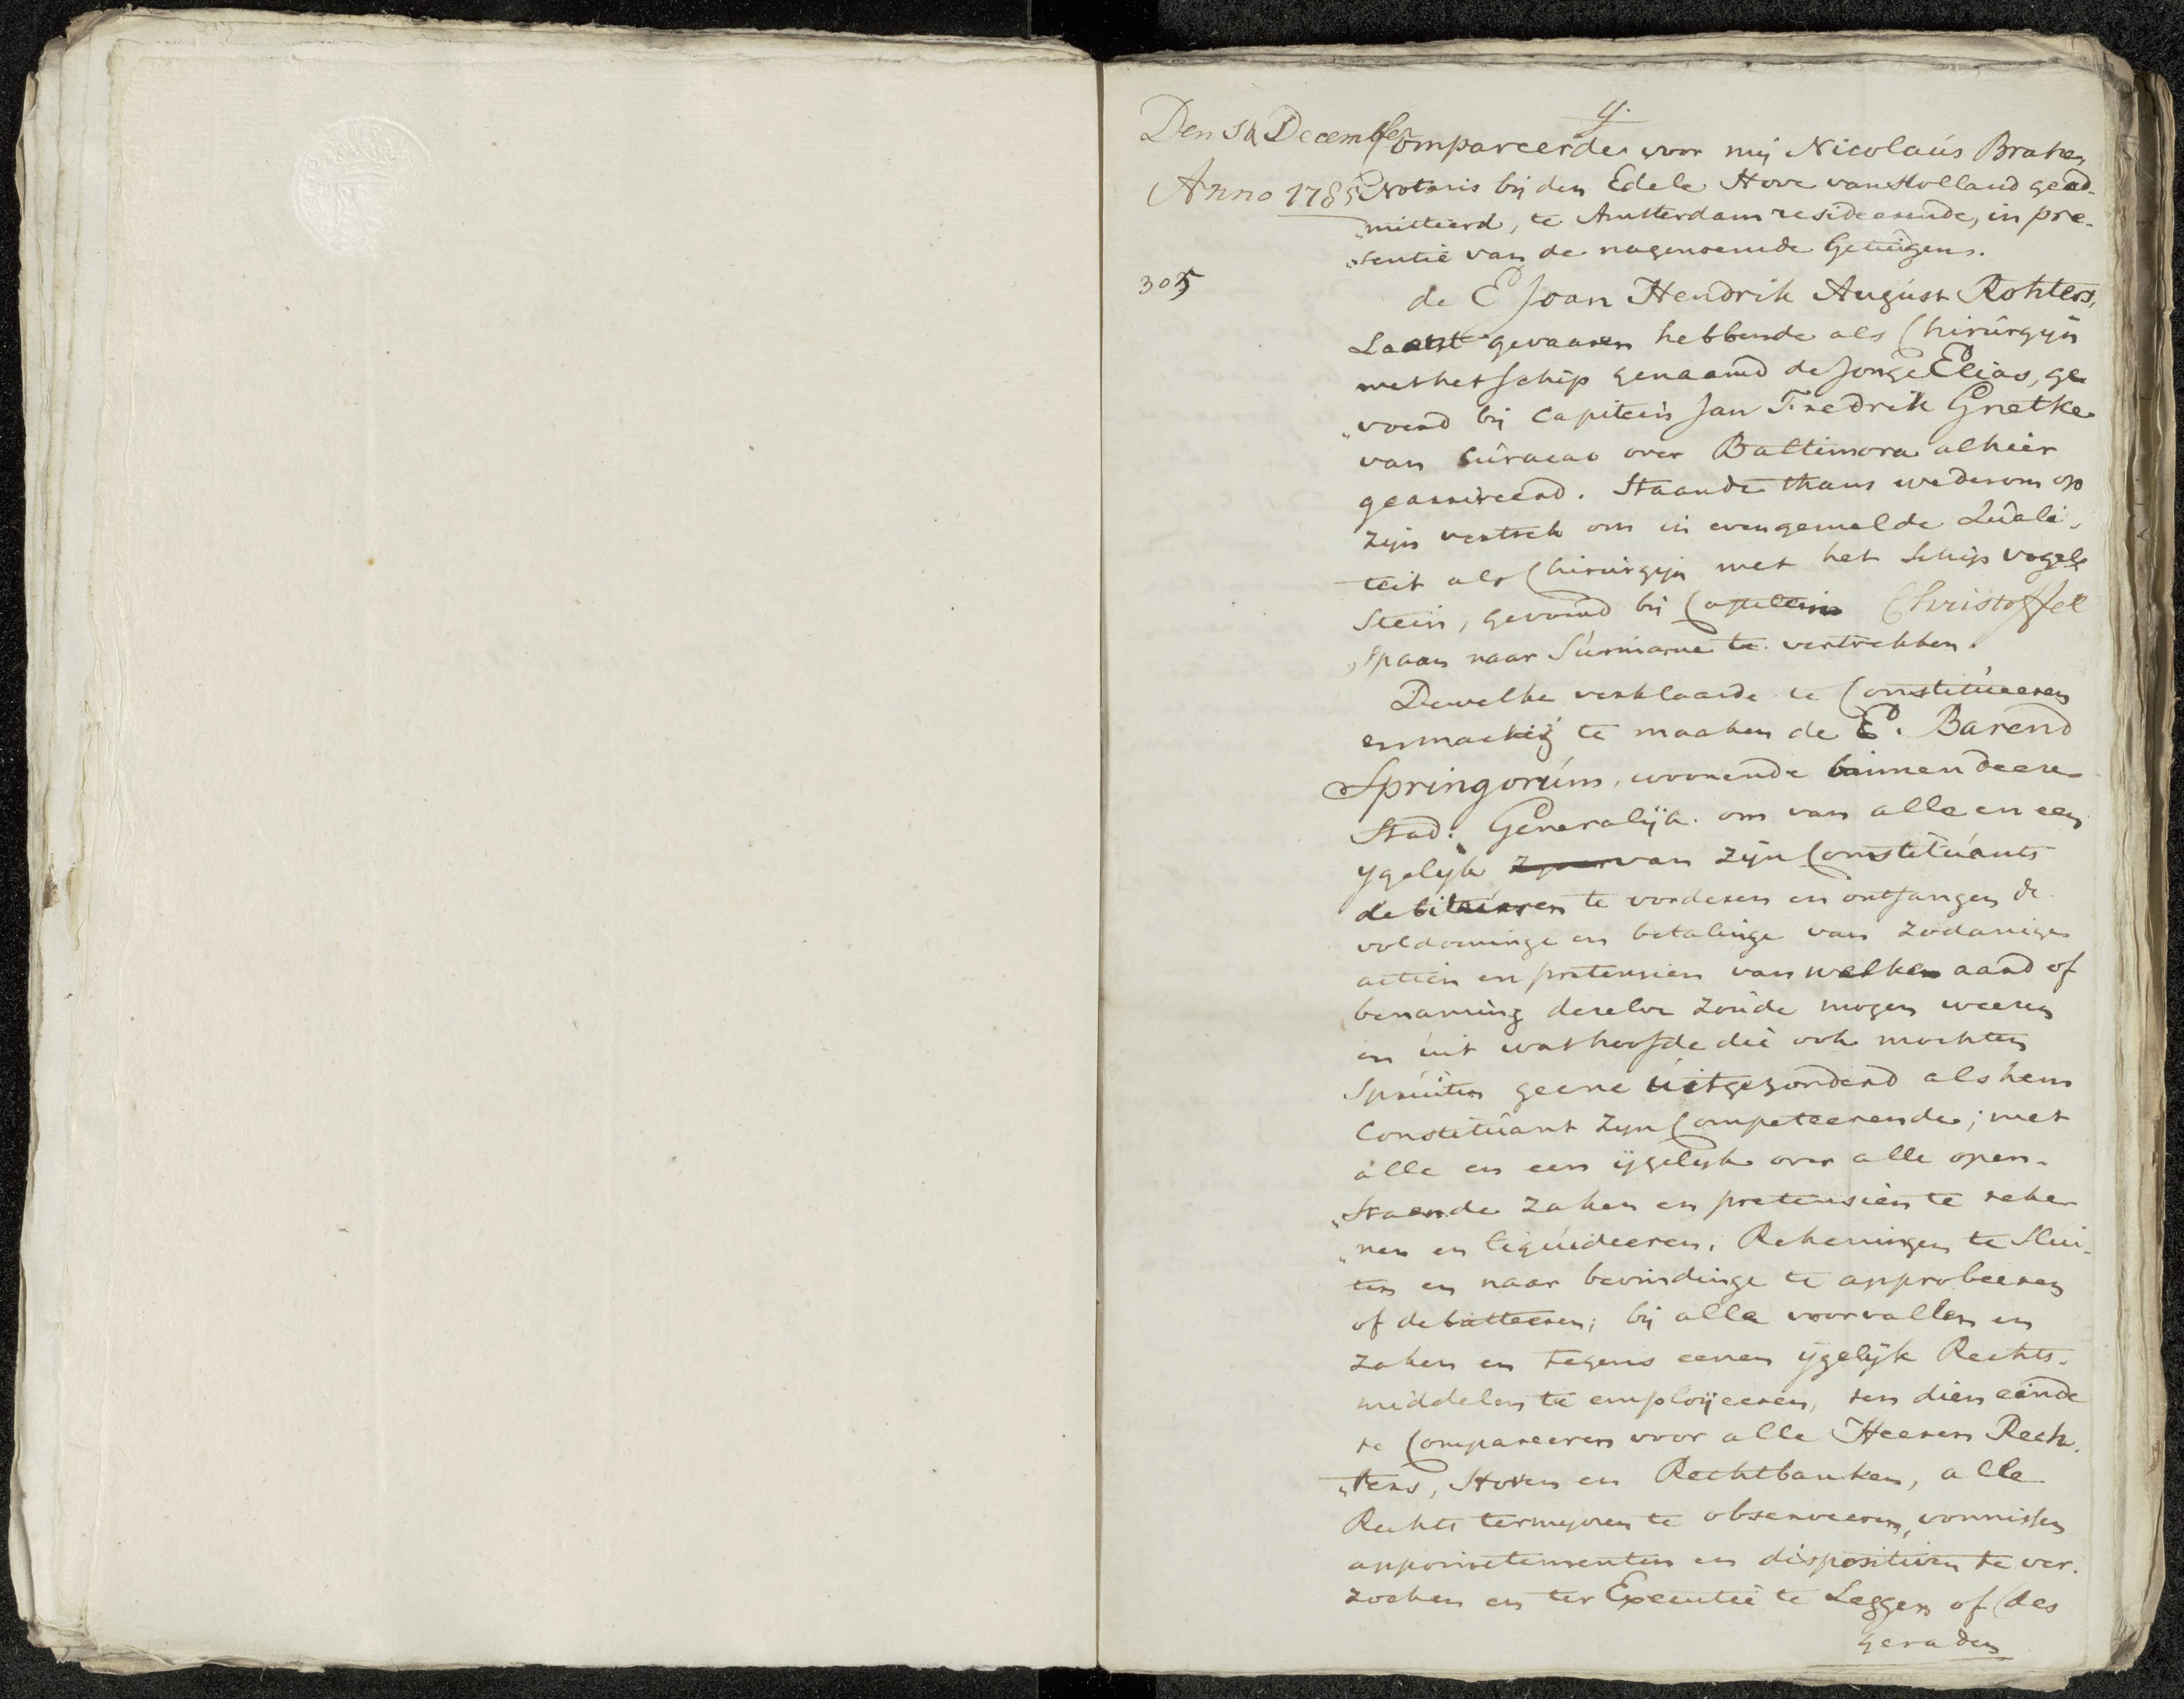 Den 14 December
Anno 1785
305
Compareerde voor mij Nicolaús Braken
Notaris bij den Edele Hove van Holland gead„
„mitteerd, te Amsterdam resideerende, in pre„
„sentie van de nagenoemde Getuigens.
de E Joan Hendrik August Rohters,
Laatst gevaaren hebbende als Chirúrgijn
met het Schip genaamd de Jonge Elias, ge
„voerd bij Capitein Jan Fredrik Gnetke
van Cúracao over Baltimora alhier
gearriveerd. Staande thans wederom op
zijn vertrek om in evengemelde Quali„
teit als Chirúrgijn met het Schip vogels
Stein, gevoerd bij Capitein Christoffel
Spaan naar Súriname te vertrekken.
Dewelke verklaarde te Constitúeeren
en machtig te maaken de E. Barend
Springorúm, woonende binnen deese
Stad. Generalijk om van alle en een
ygelijk van zijn Constitúants
debiteúren te vorderen en ontfangen de
voldoeninge en betalinge van zodanige
actien en pretensien van welken aard of
benaming deselve zoude mogen weesen
en uit wat hoofde die ook mochten
Sprúiten geene úitgezonderd als hem
Constitúant zijn Competeerende; met
alle en een ijgelijk over alle open„
„Staande zaken en pretensien te reke
„nen en liqúideeren, Rekeningen te Slui„
ten en naar bevindinge te approbeeren
of debatteeren; bij alle voorvallen en
zaken en tegens eenen ijgelijk Rechts„
middelen te emploijeeren, ten dien einde
te Compareeren voor alle Heeren Rech„
„ters, Hoven en Rechtbanken, alle
Rechts termijnen te observeeren, vonnissen
appoinctementen en dispositien te ver„
zoeken en ter Executie te Leggen of des
geraden